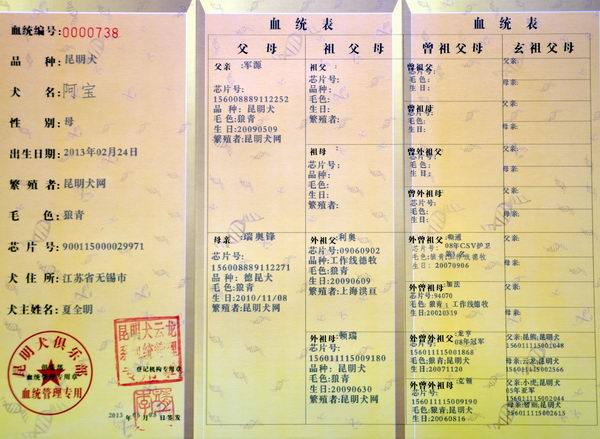 血统编号:0000738
品种:昆明犬
犬名:阿宝
性别:母
出生日期:2013年02月24日
繁殖者:昆明犬网
毛色:狼青
芯片号:900115000029971
犬住所:江苏省无锡市
犬主姓名:夏全明
昆明犬俱乐部
血统管理专用章
血统管理专用
登记机构专用章
血统表
父母
祖父母
父亲:军源
芯片号:
156008889112252
品种:昆明犬
毛色:狼青
生日:20090509
繁殖者:昆明犬网
祖父:
芯片号:
品种:
毛色:
生日:
繁殖者:
祖母:
芯片号:
品种:
毛色:
生日:
繁殖者:
母亲:瑞奥锋
芯片号:
156008889112271
品种:德昆犬
毛色:狼青
生日:2010/11/08
繁殖者:昆明犬网
外祖父:利奥
芯片号:09060902
品种:工作线德牧
毛色:狼青
生日:20090609
繁殖者:上海洪亘
外祖母:顿瑞
芯片号:
156011115009180
品种:昆明犬
毛色:狼青
生日:20090630
繁殖者:昆明犬网
血统表
曾祖父母
玄祖父母
曾祖父:
芯片号:
毛色:
生日:
父亲:
母亲:
曾祖母:
芯片号:
毛色:
生日:
父亲:
母亲:
曾外祖父:
芯片号:
毛色:
生日:
父亲:
母亲:
曾外祖母:
芯片号:
毛色:
生日:
父亲:
母亲:
外曾祖父:
芯片号:08年CSV护卫
生日:20070906
父亲:
母亲:
外曾祖母:
芯片号:94070
毛色:狼青;工作线德牧
生日:20020319
父亲:
母亲:
外曾外祖父:
芯片号:08年冠军
156011115001868
毛色:狼青;昆明犬
生日:20071120
父亲:昆熊;昆明犬
156011115001048
母亲:云龙;昆明犬
外曾外祖母:
芯片号:
156011115009190
毛色:狼青;昆明犬
生日:20060816
父亲:小虎,昆明犬
05年亚军